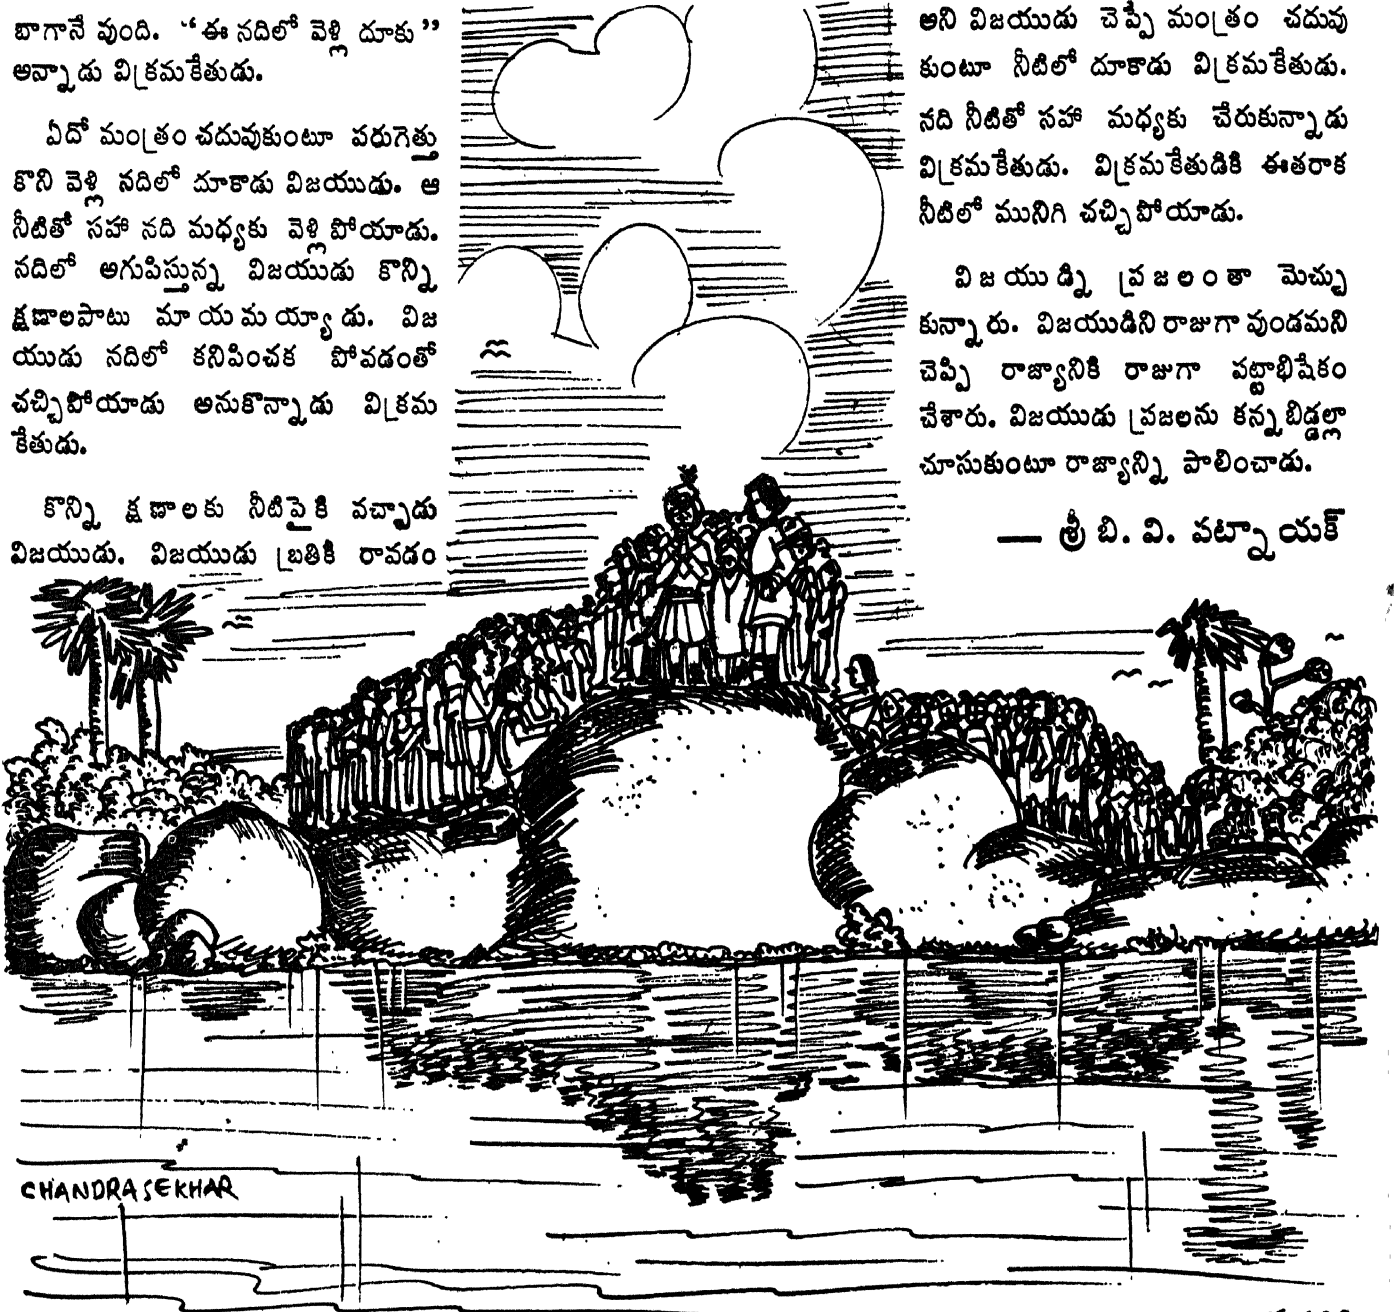 బాగానే వుంది. “ఈ నదిలో వెళ్లి దూకు”
అన్నాడు విక్రమకేతుడు.
ఏదో మంత్రం చదువుకుంటూ పరుగెత్తు
కొని వెళ్లి నదిలో దూకాడు విజయుడు. ఆ
నీటితో సహా నది మధ్యకు వెళ్లిపోయాడు.
నదిలో అగుపిస్తున్న విజయుడు కొన్ని
క్షణాలపాటు మాయమయ్యాడు. విజ
యుడు నదిలో కనిపించక పోవడంతో
చచ్చిపోయాడు అనుకొన్నాడు విక్రమ
కేతుడు.
కొన్ని క్షణాలకు నీటిపైకి వచ్చాడు
విజయుడు. విజయుడు బ్రతికి రావడం
అని విజయుడు చెప్పి మంత్రం చదువు
కుంటూ నీటిలో దూకాడు విక్రమకేతుడు.
నది నీటితో సహా మధ్యకు చేరుకున్నాడు
విక్రమకేతుడు. విక్రమకేతుడికి ఈతరాక
నీటిలో మునిగి చచ్చిపోయాడు.
విజయుడ్ని ప్రజలంతా మెచ్చు
కున్నారు. విజయుడిని రాజుగా వుండమని
చెప్పి రాజ్యానికి రాజుగా పట్టాభిషేకం
చేశారు. విజయుడు ప్రజలను కన్నబిడ్డల్లా
చూసుకుంటూ రాజ్యాన్ని పాలించాడు.
— శ్రీ బి. వి. పట్నాయక్
CHANDRASEKHAR